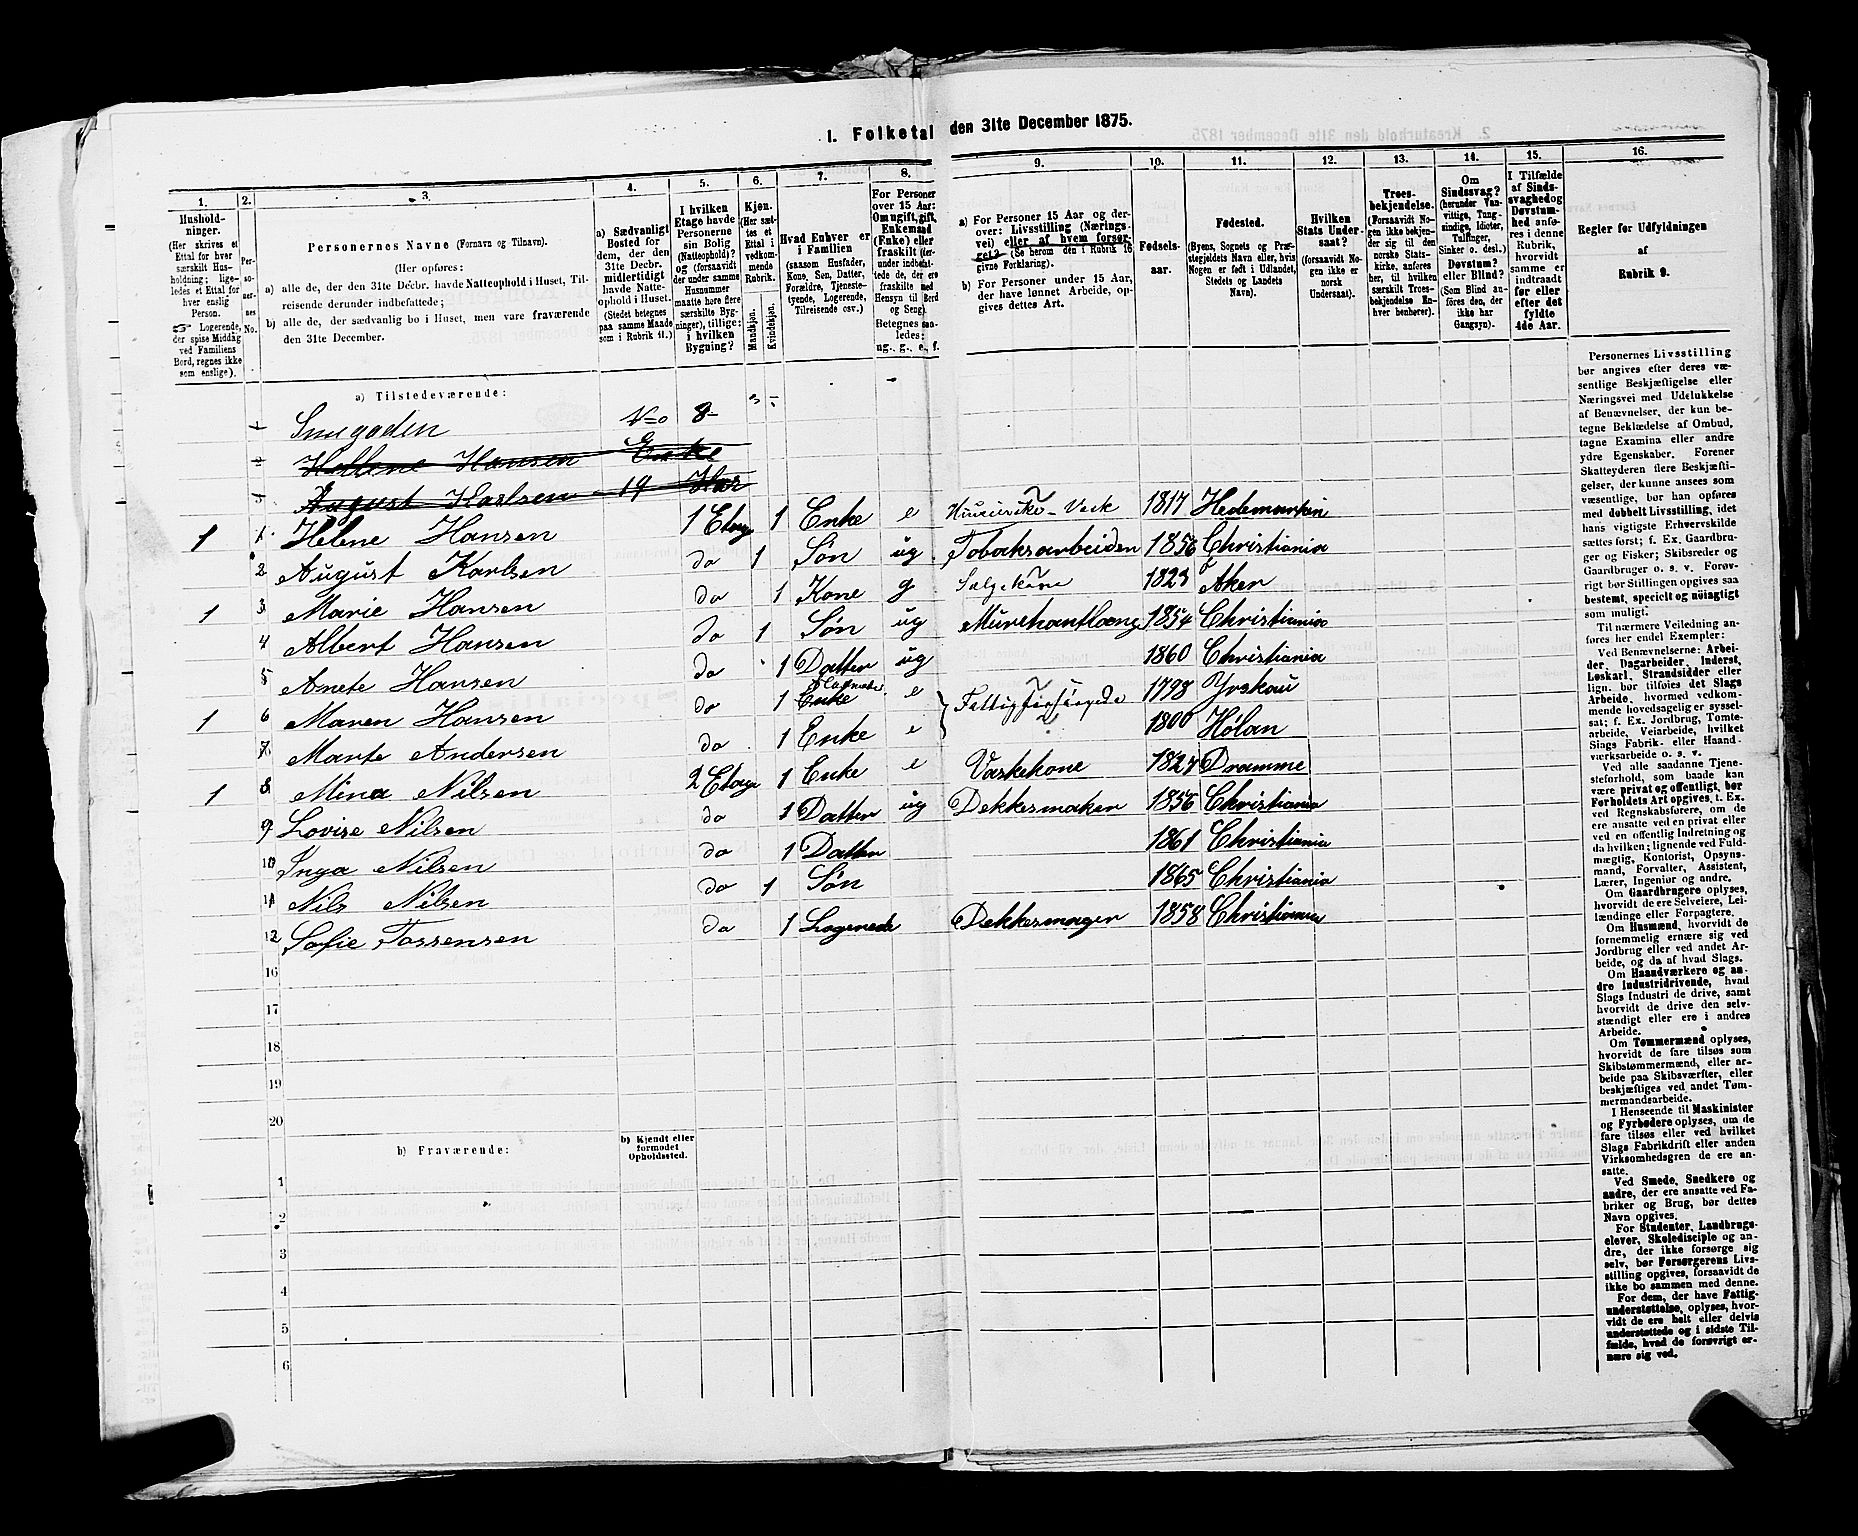 1. Folketal den 31te December 1875.
1. 2. 3. 4. 5. 6. 7. 8. 9. 10. 11. 12. 13. 14. 15. 16.
Hushold-
ninger.
(Her skrives et
Ettal for hver
særskilt Hus-
holdning; lige-
ledes et Ettal for
hver enslig
Person.
Logerende,
der spise Middag
ved Familiens
Bord, regnes ikke
som enslige).
Per-
so-
ner-
nes
No.
Personernes Navne (Fornavn og Tilnavn).
(Her opføres:
a) alle de, der den 31te Decbr. havde Natteophold i Huset, Til-
reisende derunder indbefattede;
b) alle de, der sædvanlig bo i Huset, men vare fraværende
den 31te December.
a) Sædvanligt
Bosted for
dem, der den
31te Decbr.
midlertidigt
havde Natte-
ophold i Huset.
(Stedet betegnes
paa samme Maade
som i Rubrik 11.)
I hvilken
Etage havde
Personerne
sin Bolig
(Natteophold)?
og (forsaavidt
der under samme
Husnummer
maatte høre flere
særskilte Byg-
ninger), tillige:
i hvilken
Bygning?
Kjøn.
(Her sæt-
tes et
Ettal i
vedkom-
mende
Rubrik.
Mandkjøn.
Kvindekjøn.
Hvad Enhver er
i Familien
(saasom Husfader,
Kone, Søn, Datter,
Forældre, Tjeneste-
tyende, Logerende,
Tilreisende osv.)
For Personer
over 15 Aar:
Om ugift, gift,
Enkemand
(Enke) eller
fraskilt (der-
under indbefat-
tede de, der ere
fraskilte med
Hensyn til Bord
og Seng).
Betegnes saa-
ledes:
ug., g., e., f.
a) For Personer 15 Aar og der-
over: Livsstilling (Nærings-
vei) eller af hvem forsør-
get? (Se herom den i Rubrik 16
givne Forklaring).
b) For Personer under 15 Aar,
der have lønnet Arbeide, op-
gives dettes Art.
Fødsels-
aar.
Fødested.
(Byens, Sognets og Præ-
stegjeldets Navn eller, hvis
Nogen er født i Udlandet,
Stedets og Landets
Navn).
Hvilken
Stats Under-
saat?
(forsaavidt No-
gen ikke er
norsk
Undersaat).
Troes-
bekjendelse.
(Forsaavidt No-
gen ikke bekjen-
der sig til den
norske Stats-
kirke, anføres
her, til hvilken
særskilt Troes-
bekjendelse En-
hver henhører).
Om
Sindssvag?
(herunder Van-
vittige, Tung-
sindige, Idioter,
Tullinger,
Sinker o. desl.)
Døvstum?
eller Blind?
(Som Blind an-
føres den, der
ikke har
Gangsyn).
I Tilfælde
af Sinds-
svaghed og
Døvstum-
hed anfø-
res i denne
Rubrik,
hvorvidt
samme er
indtraadt
før eller
efter det
fyldte
4de Aar.
Regler for Udfyldningen
af
Rubrik 9.
a) Tilstedeværende:
Smugaden No 8
Hellene Hansen Enke
August Karlsen 19 Aar
1 1 Helene Hansen 1 Etage 1 Enke e Væsk 1817 Hedemarken
2 August Karlsen do 1 Søn ug Tobaksarbeiden 1856 Christiania
1 3 Marie Hansen do 1 Kone g Sælgekone 1823 Aker
4 Albert Hansen do 1 Søn ug Murehantlæng 1854 Christiania
5 Anete Hansen do 1 Datter ug 1860 Christiania
1 6 Maren Hansen do 1 Enke e Fattigforsørgede 1798
7 Marte Andersen do 1 Enke e 1800 Hølan
1 8 Mina Nilsen 2 Etage 1 Enke e Vaskekone 1827 Dramme
9 Lovise Nilsen do 1 Datter ug Dekkesmaker 1856 Christiania
10 Inga Nilsen do 1 Datter 1861 Christiania
11 Nils Nilsen do 1 Søn 1865 Christiania
12 Sofie Torsensen do 1 Logerede Dekkesmager 1858 Christiania
16
17
18
19
20
b) Fraværende:
b) Kjendt eller
formodet
Opholdssted.
1
2
3
4
5
6
Personernes Livsstilling
bør angives efter deres væ-
sentlige Beskjæftigelse eller
Næringsvei med Udelukkelse
af Benævnelser, der kun be-
tegne Beklædelse af Ombud,
tagne Examina eller andre
ydre Egenskaber. Forener
Skatteyderen flere Beskjæfti-
gelser, der kunne ansees som
væsentlige, bør han opføres
med dobbelt Livsstilling, idet
hans vigtigste Erhvervskilde
sættes først; f. Ex. Gaardbru-
ger og Fisker; Skibsreder og
Gaardbruger o. s. v. Forøv-
rigt bør Stillingen opgives saa
bestemt, specielt og nøiagtigt
som muligt.
Til nærmere Veiledning an-
føres her endel Exempler:
Ved Benævnelserne: Arbei-
der, Dagarbeider, Inderst,
Løskarl, Strandsidder eller
lign. bør tilføies det Slags
Arbeide, hvormed vedkom-
mende hovedsagelig er syssel-
sat; f. Ex. Jordbrug, Tomte-
arbeide, Veiarbeide, hvilket
Slags Fabrik- eller Haand-
værksarbeide o. s. v.
Ved alle saadanne Tjene-
steforhold, som baade kan
være privat og offentligt, bør
Forholdets Art opgives, t. Ex.
ved Regnskabsførere, om de
ere ansatte ved en privat eller
ved en offentlig Indretning og
da hvilken; lignende ved Fuld-
mægtig, Kontorist, Opsyns-
mand, Forvalter, Assistent,
Lærer, Ingeniør og andre.
Om Gaardbrugere oplyses,
hvorvidt de ere Selveiere, Lei-
lændinge eller Forpagtere.
Om Husmænd, hvorvidt de
fornemmelig ernære sig ved
Jordbrug eller ved andet Ar-
beide, og da af hvad Slags.
Om Haandværkere og an-
dre Industridrivende, hvad
Slags Industri de drive, samt
hvorvidt de drive den selv-
stændigt eller ere i andres
Arbeide.
Om Tømmermænd oplyses,
hvorvidt de fare tilsøs som
Skibstømmermænd, eller ar-
beide paa Skibsværfter, eller
beskjæftiges ved andet Tøm-
mermandsarbeide.
I Henseende til Maskinister
og Fyrbødere oplyses, om de
fare tilsøs eller ved hvilket
Slags Fabrikdrift eller anden
Virksomhedsgren de ere an-
satte.
Ved Smede, Snedkere og
andre, der ere ansatte ved Fa-
briker og Brug, bør dettes
Navn opgives.
For Studenter, Landbrugs-
elever, Skoledisciple og an-
dre, der ikke forsørge sig
selv, bør Forsørgerens Livs-
stilling opgives, forsaavidt de
ikke bo sammen med denne.
For dem, der have Fattig-
understøttelse, oplyses, hvor-
vidt de ere helt eller delvis
understøttede og i sidste Til-
fælde, hvad de forøvrigt er-
nære sig ved.